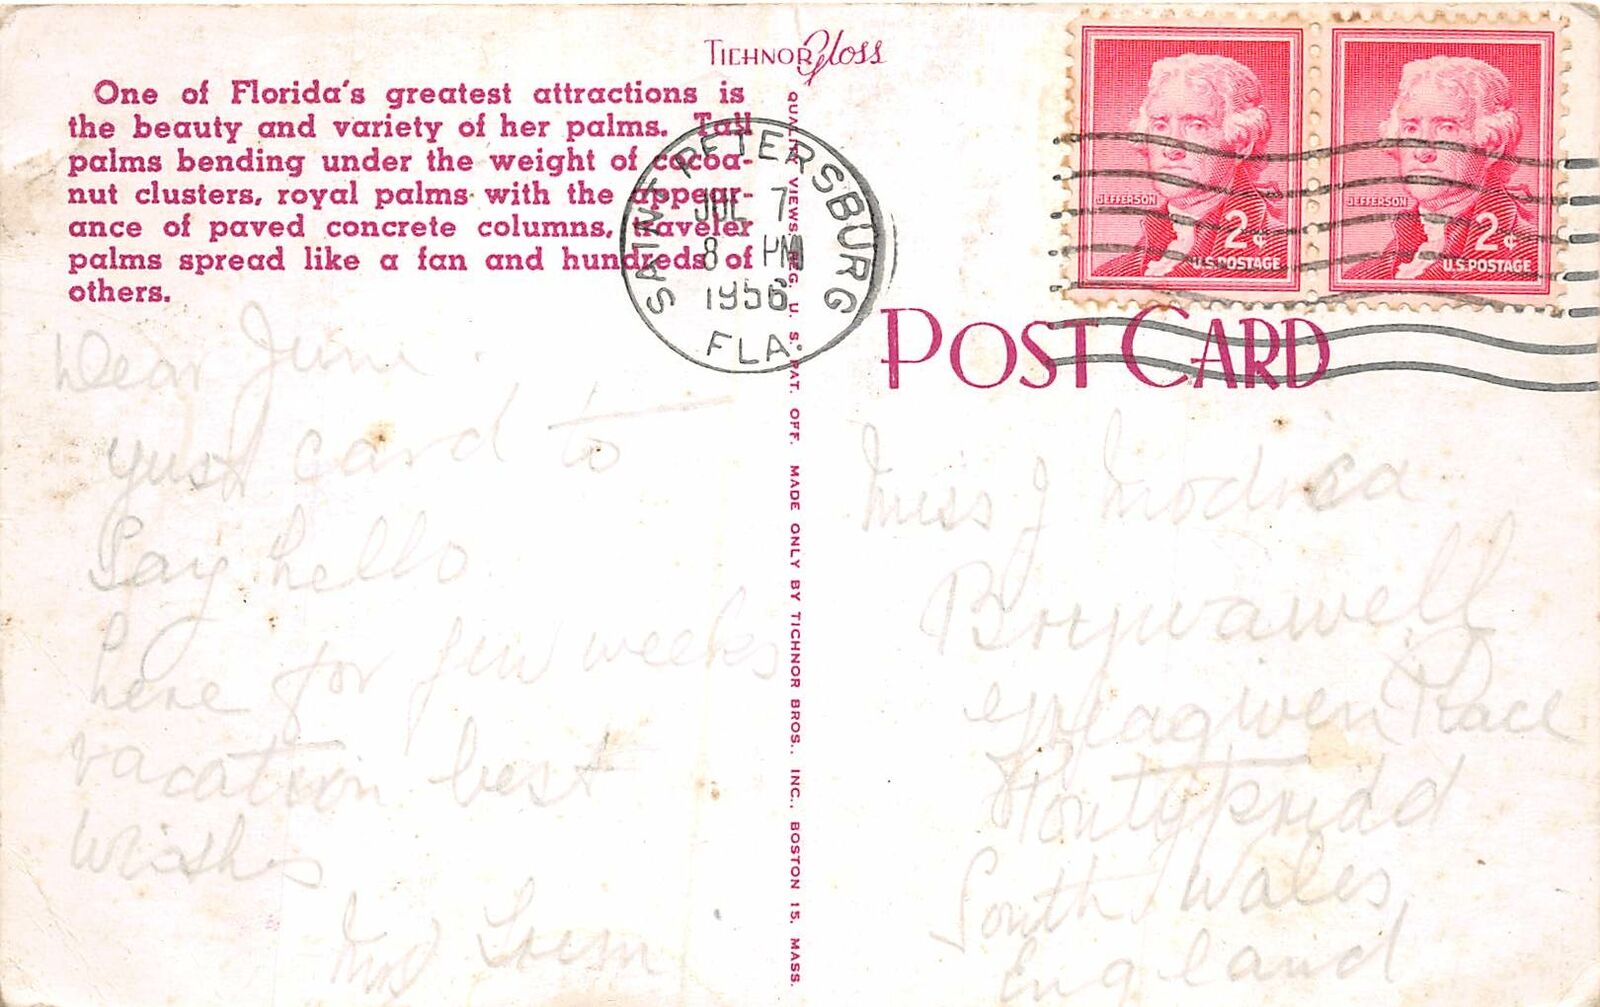 TICHNOR Gloss
One of Florida's greatest attractions is
the beauty and variety of her palms. Tall
palms bending under the weight of cocoa-
nut clusters, royal palms with the appear-
ance of paved concrete columns, traveler
palms spread like a fan and hundreds of
others.
SAINT PETERSBURG
JUL 7
8 PM
1956
FLA.
JEFFERSON
2¢
U.S. POSTAGE
JEFFERSON
2¢
U.S. POSTAGE
POST CARD
QUALITY VIEWS REG. U. S. PAT. OFF. MADE ONLY BY TICHNOR BROS., INC., BOSTON 15, MASS.
Dear June.
yust card to
Say hello
here for few weeks
vacation best
Wishes
Mrs
Miss J Modica
Pontypridd
South Wales
England